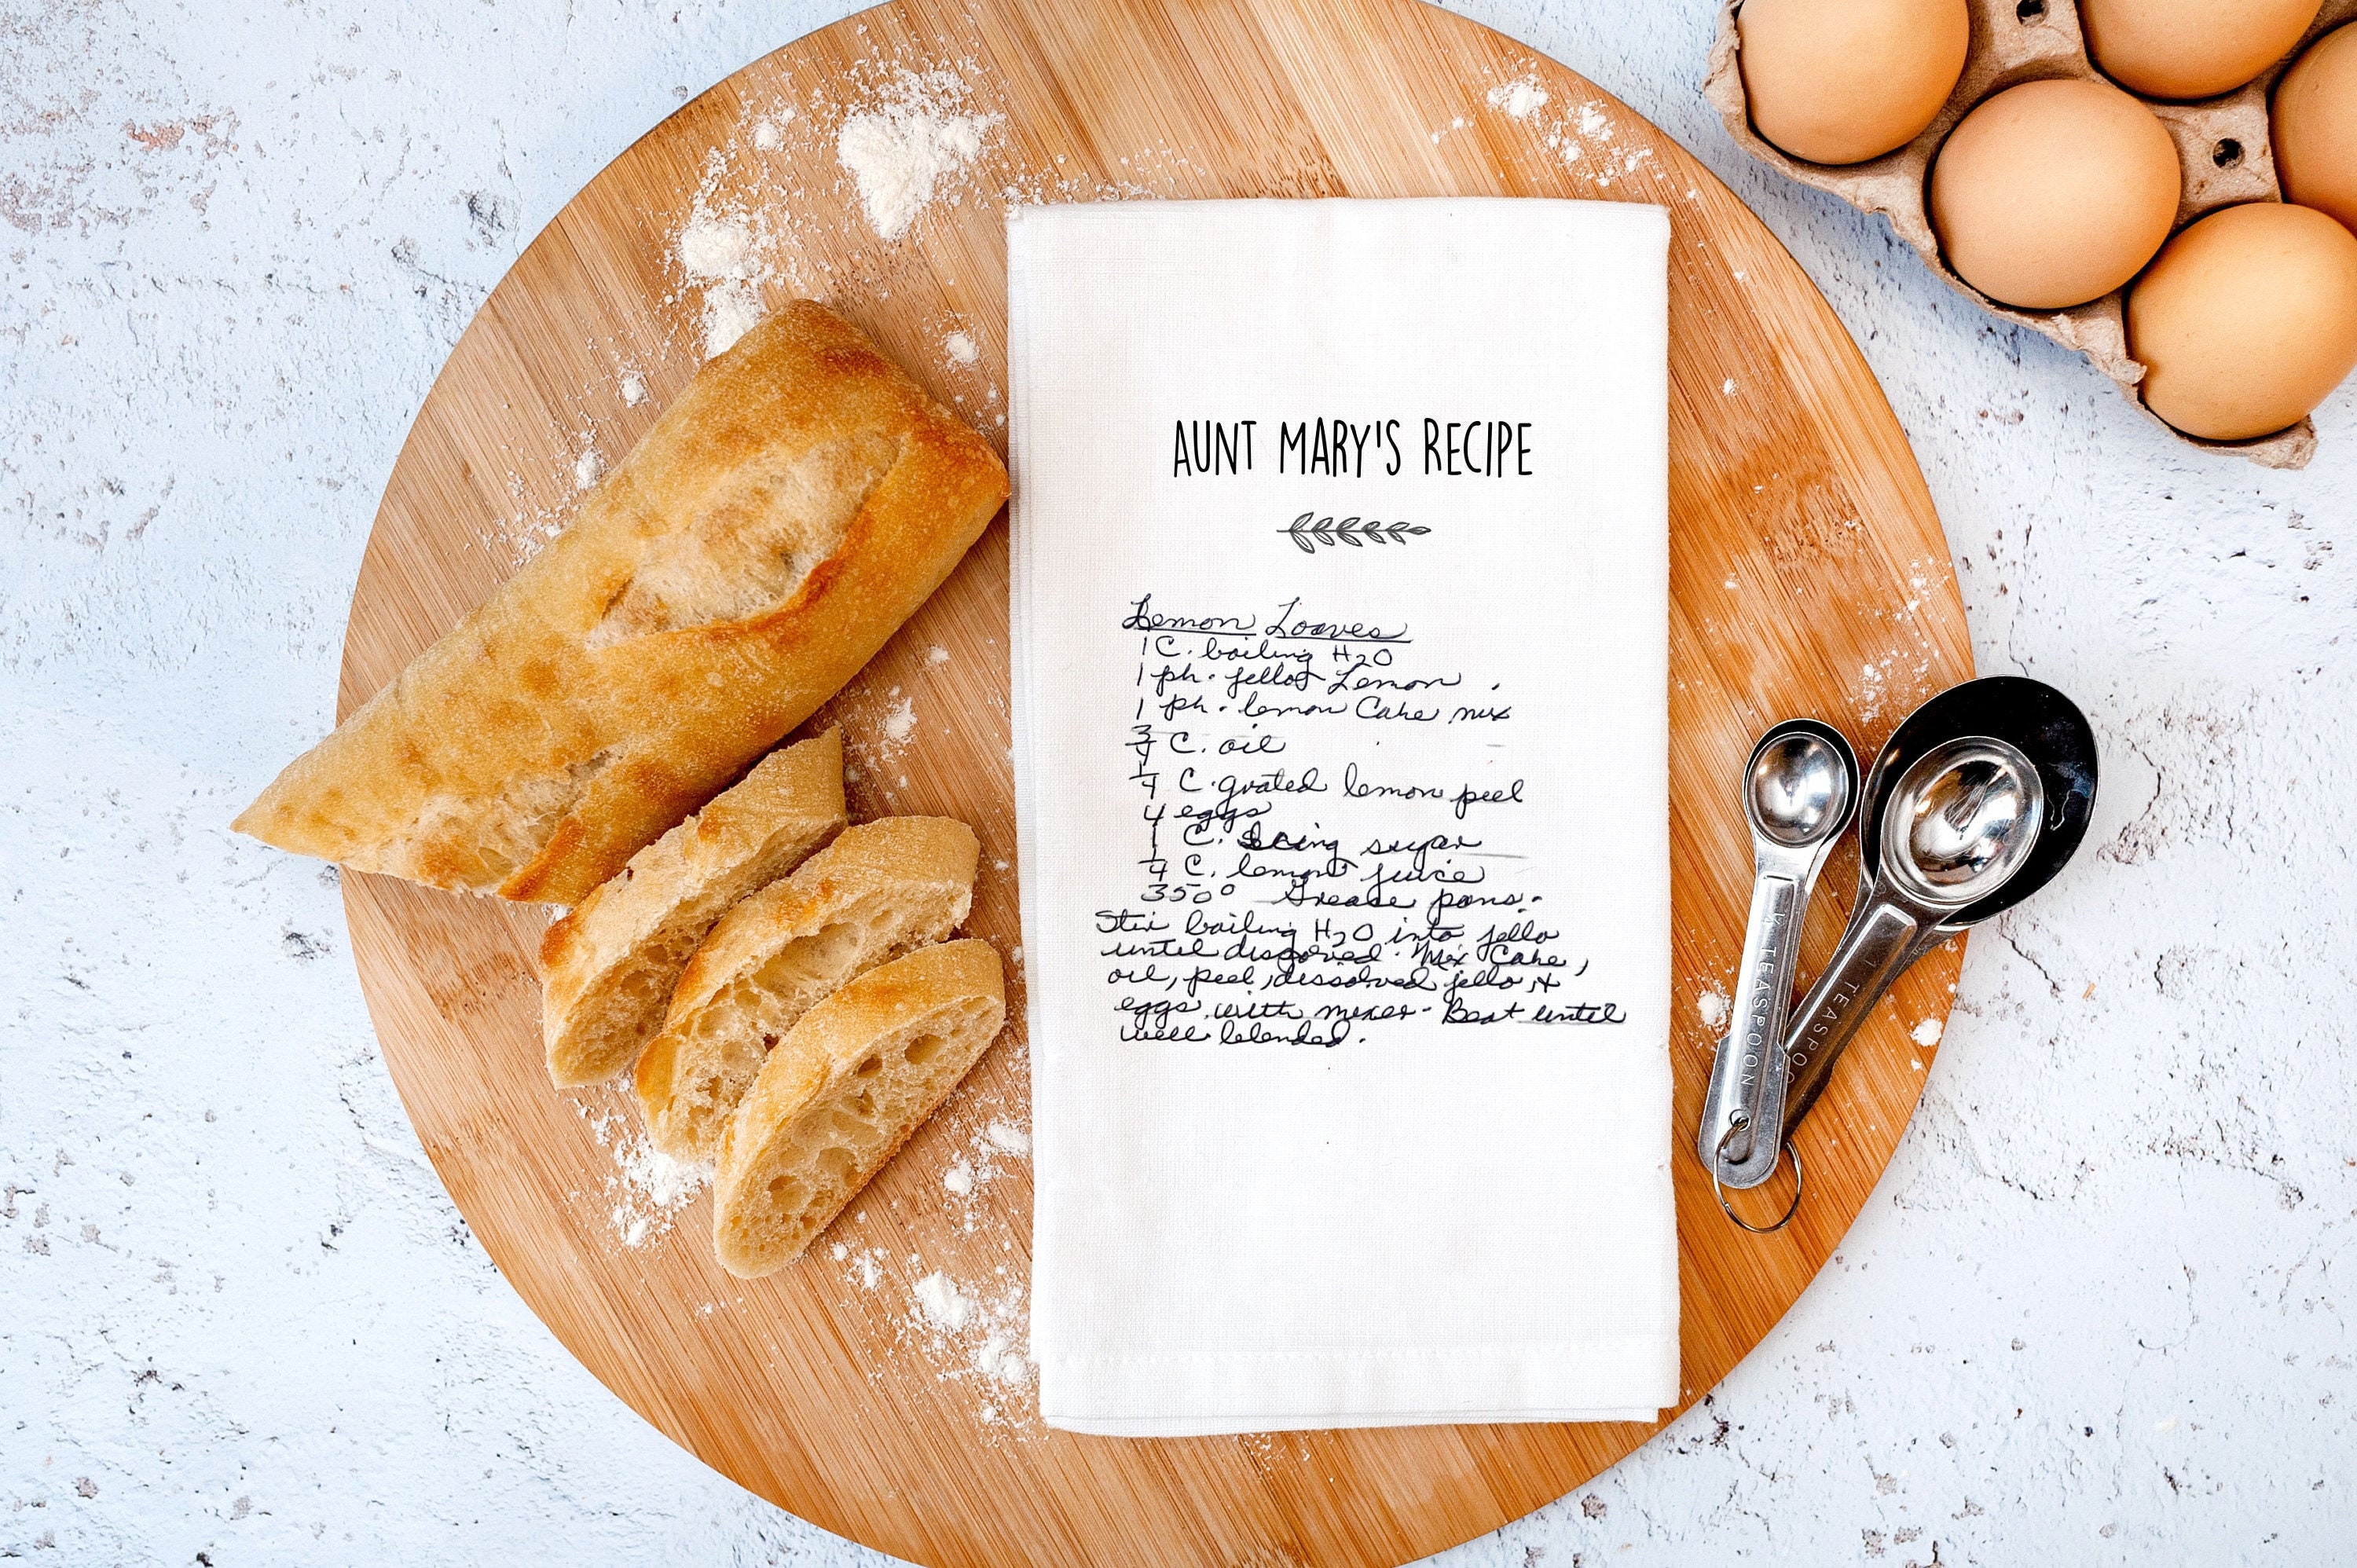 AUNT MARY'S RECIPE
Lemon Loaves
1 C. boiling H2O
1 pk. jello Lemon
1 pk. lemon Cake mix
3/4 C. oil
1/4 C. grated lemon peel
4 eggs
1 C. Icing sugar
1/4 C. lemon juice
350° Grease pans.
Stir boiling H2O into jello
until dissolved. Mix Cake,
oil, peel, dissolved jello, &
eggs with mixer. Beat until
well blended.
1/4 TEASPOON
1 TEASPOO